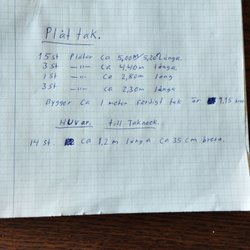 Plåt tak.
15 st Plåtar ca 5,00 5,20 långa
3 st —"— ca 4,40 m långa
1 st —"— ca 2,80 m lång
3 st —"— ca 2,30 m långa
Bygger ca 1 meter färdigt tak är 1.15
Huvar. till Taknock.
14 st. ca 1,2 m långa ca 35 cm breda.